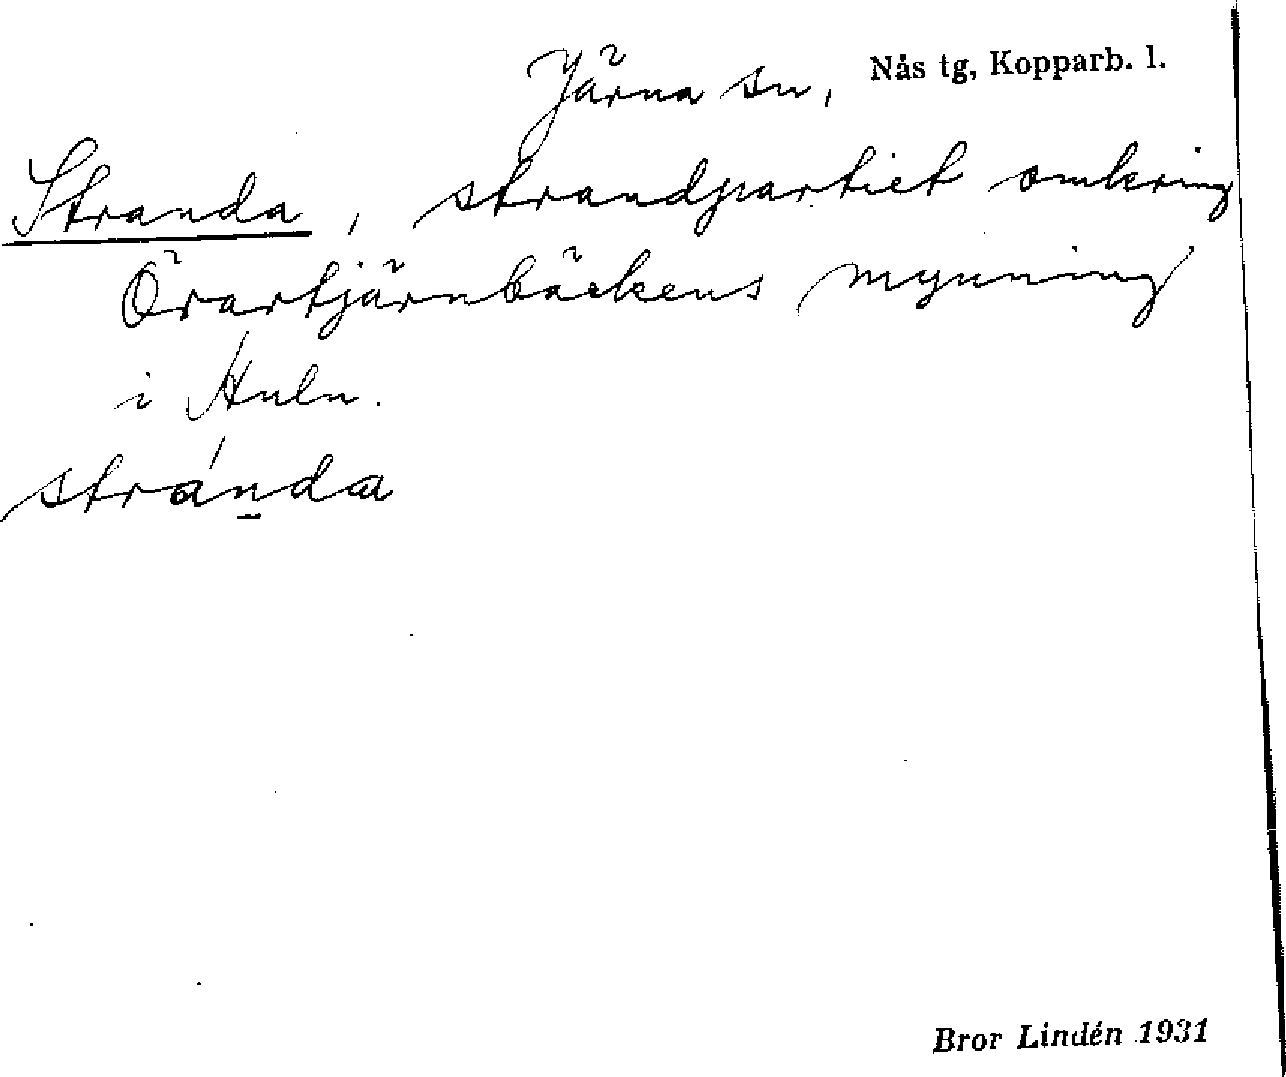 Järna sn, Nås tg, Kopparb. l.
Stranda, strandpartiet omkring
Örartjärnbäckens mynning
i Huln.
stránda
Bror Lindén 1931